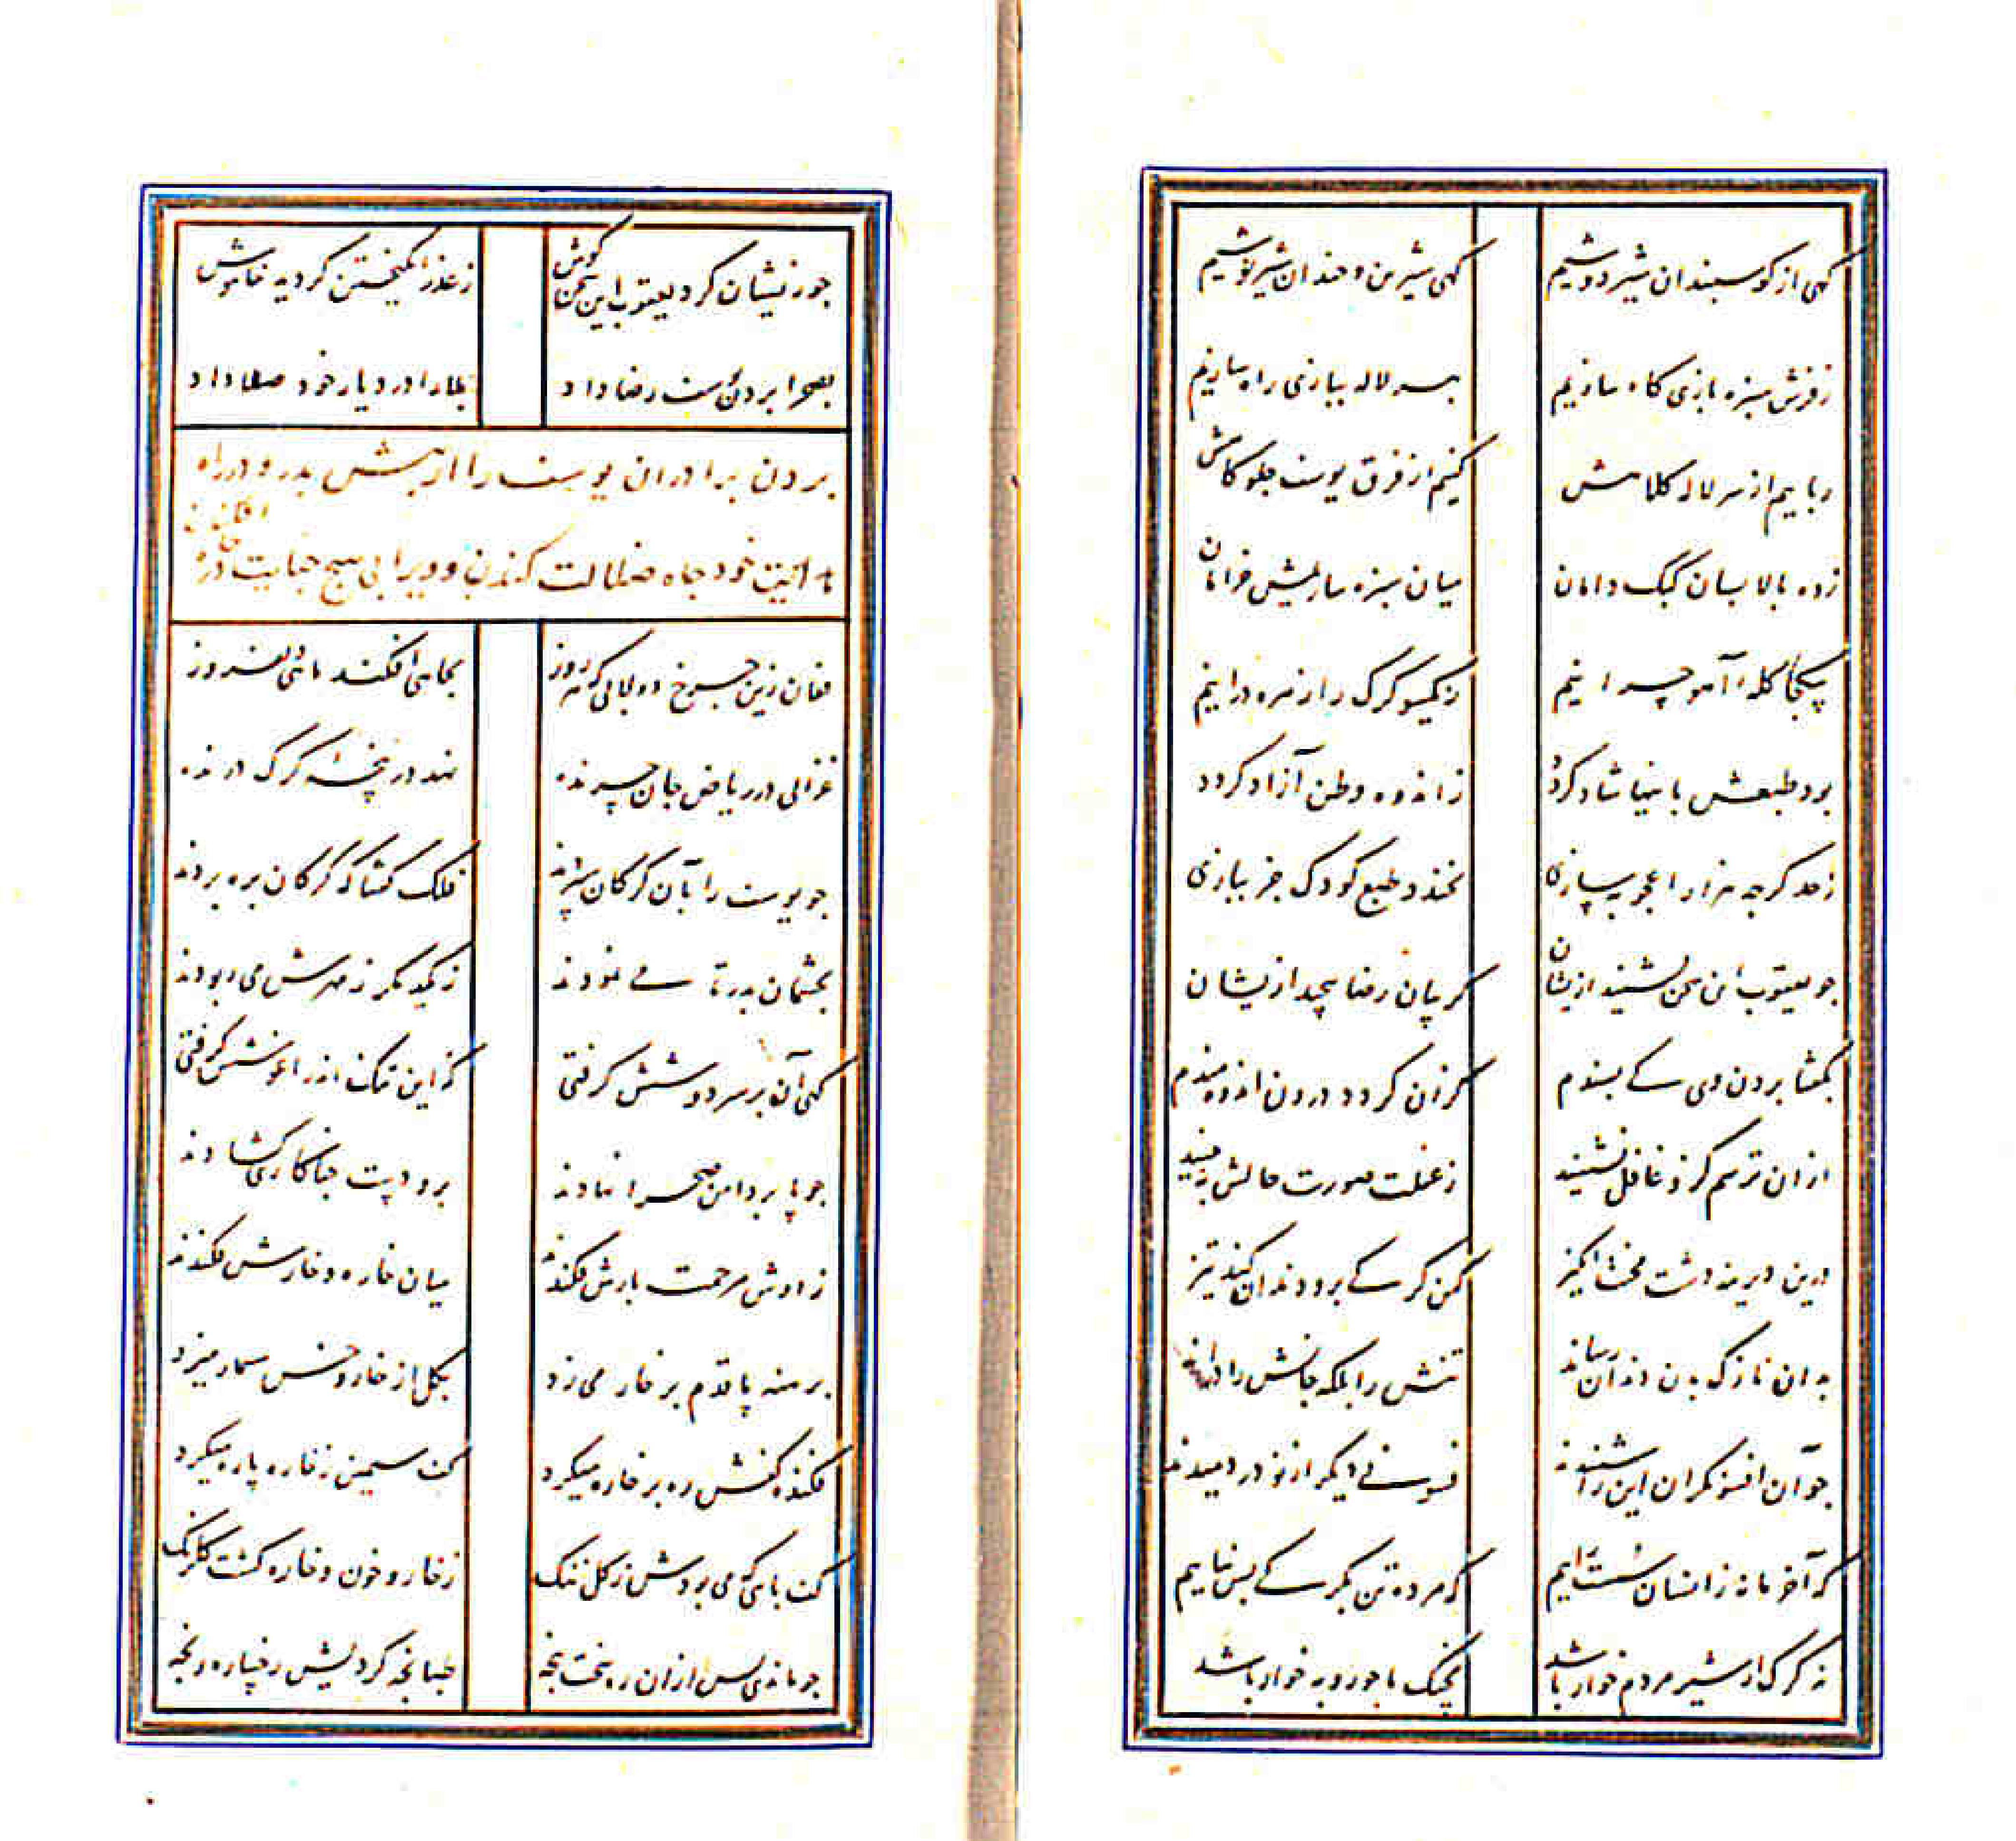 کهی از کوسبندان شیر دوشیم کهی شیرین و خندان شیر نوشیم
ز فرش سبزه بازی کاه سازیم بسر لاله ببازی راه سازیم
رباییم از سر لاله کلاهش کنیم از فرق یوسف جلوه کاهش
زده بالا بسان کبک دامان میان سبزه سازیمش خرامان
بیکجا کله آهو چرانیم ز یکسو کرک را زهره درانیم
بود طبعش باینها شاد کردد ز اندوه وطن آزاد کردد
ز حد کرچه هزار اعجوبه سازی نخندد طبع کودک جز ببازی
جو یعقوب این سخن بشنید ازیشان کریبان رضا پیچید ازیشان
بکفتا بردن وی کی پسندم کزان کردد درون اندوه مندم
ازان ترسم کزو غافل نشینید ز غفلت صورت حالش نبینید
درین دیرینه دشت محنت انکیز کهن کرکی برو دندان کند تیز
بدان نازک بدن دندان رساند تنش را بلکه جانش را دراند
جو آن افسونکران این را شنیدند فسونی دیکر از نو در دمیدند
که آخر ما نه زانسان سست راییم که هر ده تن بکرکی بس نیاییم
نه کرک ار شیر مردم خوار باشد بجنک ما جو روبه خوار باشد
جو زیشان کرد یعقوب این سخن کوش ز عذر انکیختن کردید خاموش
بصحرا بردن یوسف رضا داد بلا را در دیار خود صلا داد
بردن برادران یوسف را از پیش پدر و در راه
خود چاه ضلالت کندن و ویرا بی هیچ جنایت در چاه افکندن
فغان زین چرخ دولابی که هر روز بجاهی افکند ماهی دلفروز
غزالی در ریاض جان چرنده نهد در پنجه کرک درنده
جو یوسف را بآن کرکان سپردند فلک کفتا که کرکان بره بردند
بجشمان پدر تا می نمودند ز یکدیکر ز مهرش می ربودند
کهی آن بر سر دوشش کرفتی که این تنک اندر اغوشش کرفتی
جو پا بر دامن صحرا نهادند برو دست جفا کاری کشادند
ز دوش مرحمت بارش فکندند میان خاره و خارش فکندند
برهنه پا قدم بر خار می زد بکل از خار و خس مسمار میزد
فکنده کفش ره بر خاره میکرد کف سیمین ز خاره پاره میکرد
کف پایی که می بودش ز کل ننک ز خار و خون و خاره کشت کلرنک
جو ماندی پس ازان ده سخت پنجه طبانجه کردیش رخساره رنجه